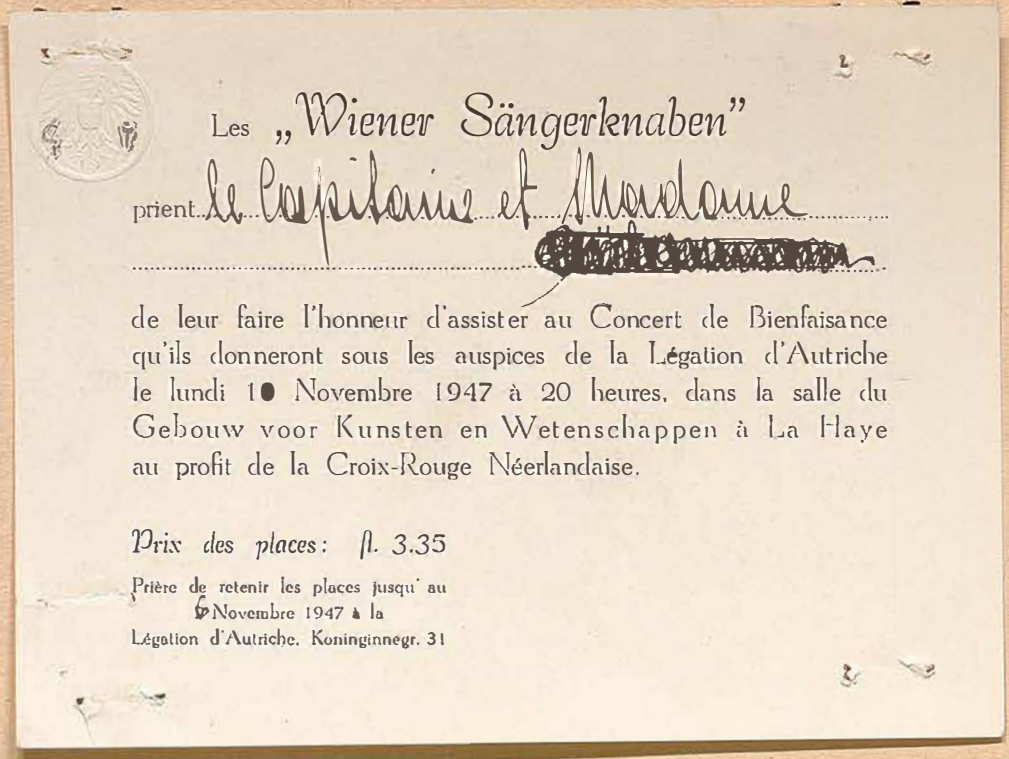 Les „Wiener Sängerknaben”
prient le Capitaine et Madame
de leur faire l'honneur d'assister au Concert de Bienfaisance
qu'ils donneront sous les auspices de la Légation d'Autriche
le lundi 10 Novembre 1947 à 20 heures, dans la salle du
Gebouw voor Kunsten en Wetenschappen à La Haye
au profit de la Croix-Rouge Néerlandaise.
Prix des places: fl. 3.35
Prière de retenir les places jusqu' au
Novembre 1947 à la
Légation d'Autriche. Koninginnegr. 31